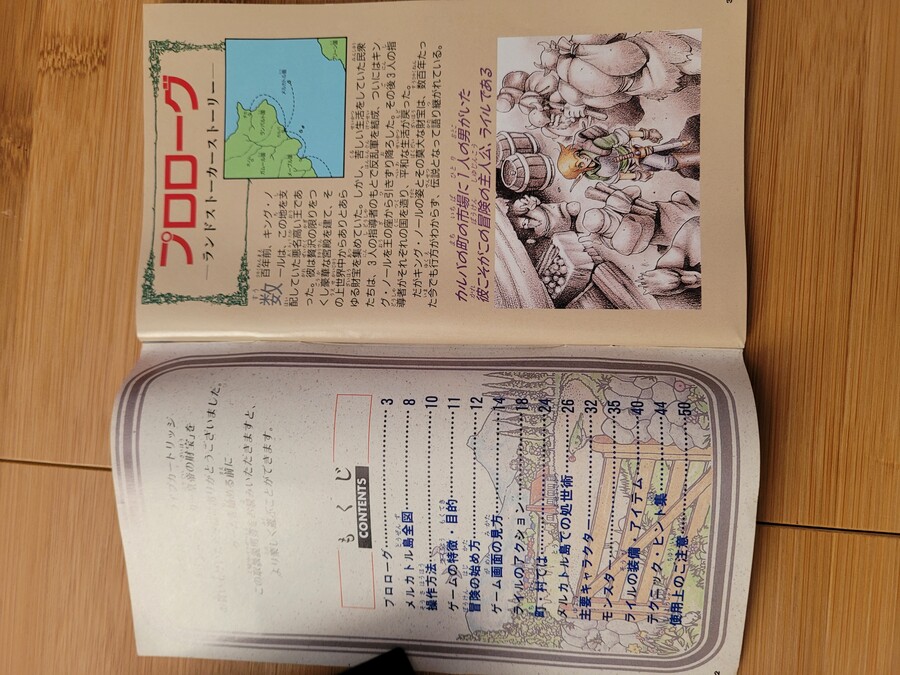 プカートリッジ
帝の財宝』を
りがとうございました。
る前に
この取扱説明書をお読みいただきますと、
より楽しく遊ぶことができます。
もくじ
CONTENTS
プロローグ……3
メルカトル島全図……8
操作方法……10
ゲームの特徴・目的……11
冒険の始め方……12
ゲーム画面の見方……14
ライルのアクション……18
町・村では……24
メルカトル島での処世術……26
主要キャラクター……32
モンスター……36
ライルの装備・アイテム……40
テクニック・ヒント集……44
使用上のご注意……50
2
プロローグ
―ランドストーカーストーリー―
数百年前、キング・ノ
ールは、この地を支
配していた悪名高い王であ
った。彼は贅沢の限りをつ
くし豪華な宮殿を建て、そ
の上世界中からありとあら
ゆる財宝を集めていた。しかし、苦しい生活をしていた民衆
たちは、3人の指導者のもとで反乱軍を結成、ついにはキン
グ・ノールを王の座から引きずり降ろした。その後3人の指
導者がそれぞれの国を造り、平和な生活が戻った。
だがキング・ノールの姿とその莫大な財宝は、数百年たっ
た今でも行方がわからず、伝説となって語り継がれている。
カルバの町の市場に1人の男がいた
彼こそがこの冒険の主人公、ライルである
3